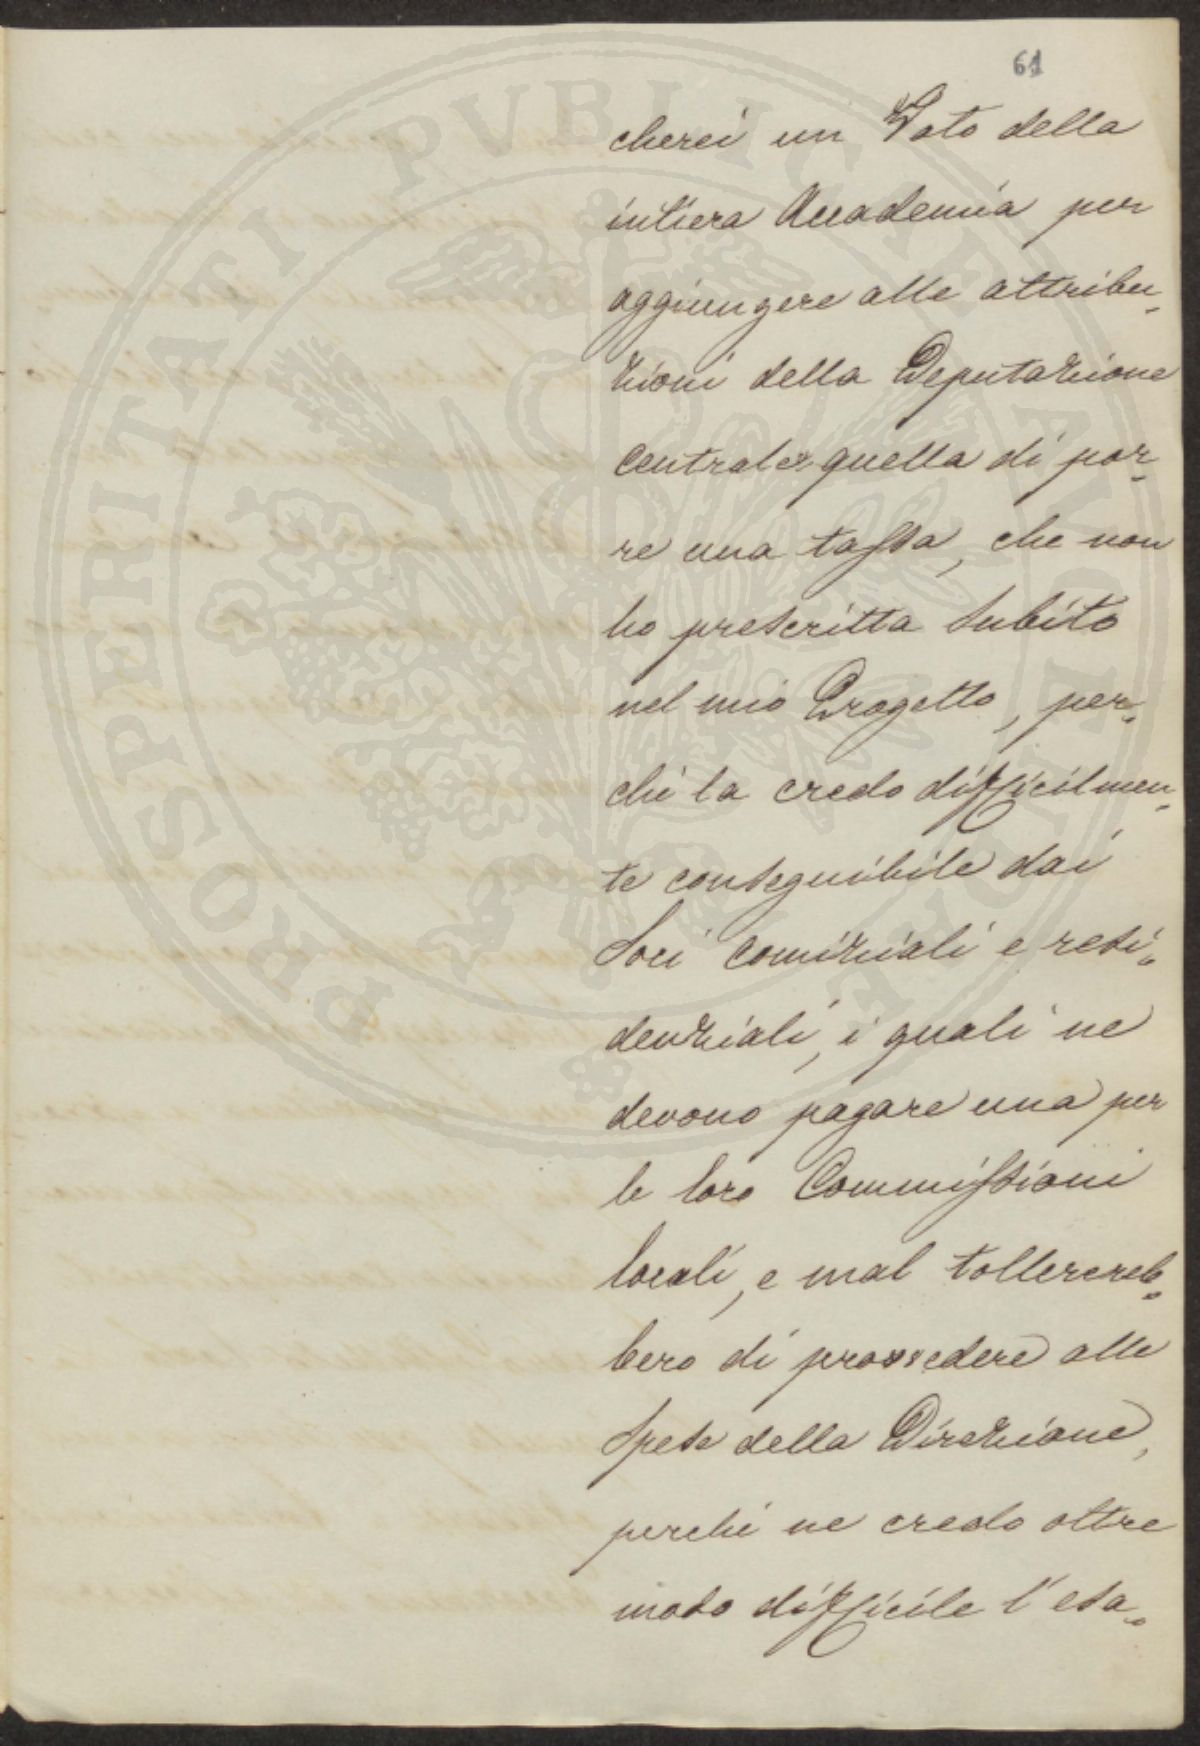 61
cherei un Voto della
intiera Accademia per
aggiungere alle attribu-
zioni della Deputazione
centrale quella di por-
re una tassa, che non
ho prescritta subito
nel mio Progetto, per-
chè la credo difficilmen-
te conseguibile dai
Soci comiziali e resi-
denziali, i quali ne
devono pagare una per
le loro Commissioni
locali, e mal tollerereb-
bero di provvedere alle
spese della Direzione,
perchè ne credo oltre
modo difficile l'esa-
PROSPERITATI PVBLICAE AVGENDAE